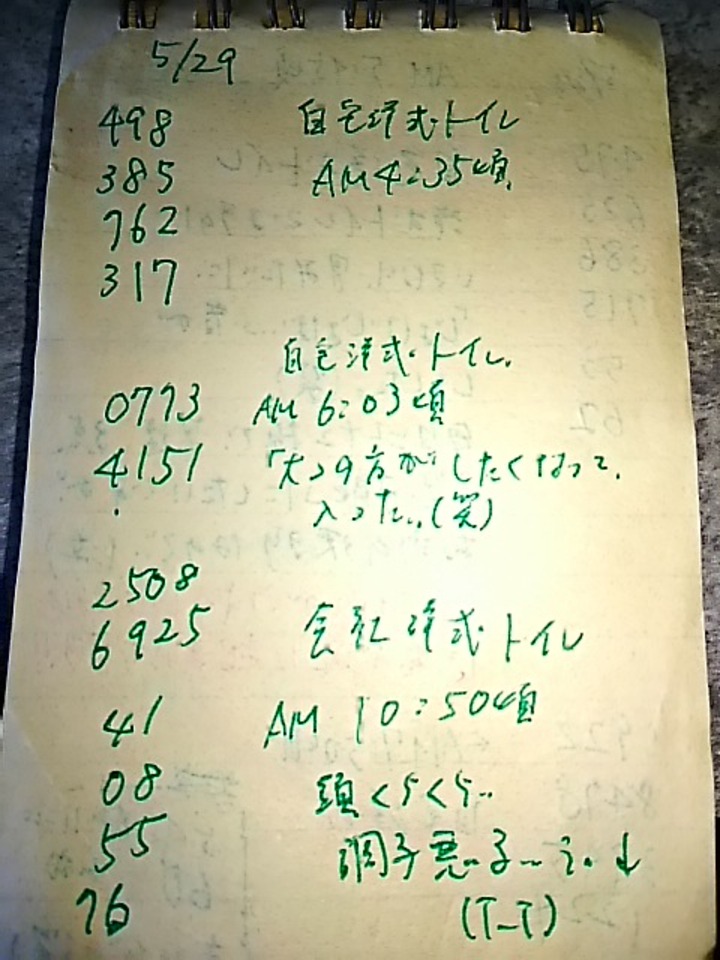 5/29
498 自宅洋式トイレ
385 AM4:35頃
762
317
自宅洋式トイレ.
0773 AM 6:03頃
4151 「大」の方がしたくなって、
入った..(笑)
2508
6925 会社洋式トイレ
41 AM 10:50頃
08 頭くらくら..
55 調子悪い
76 (T_T)